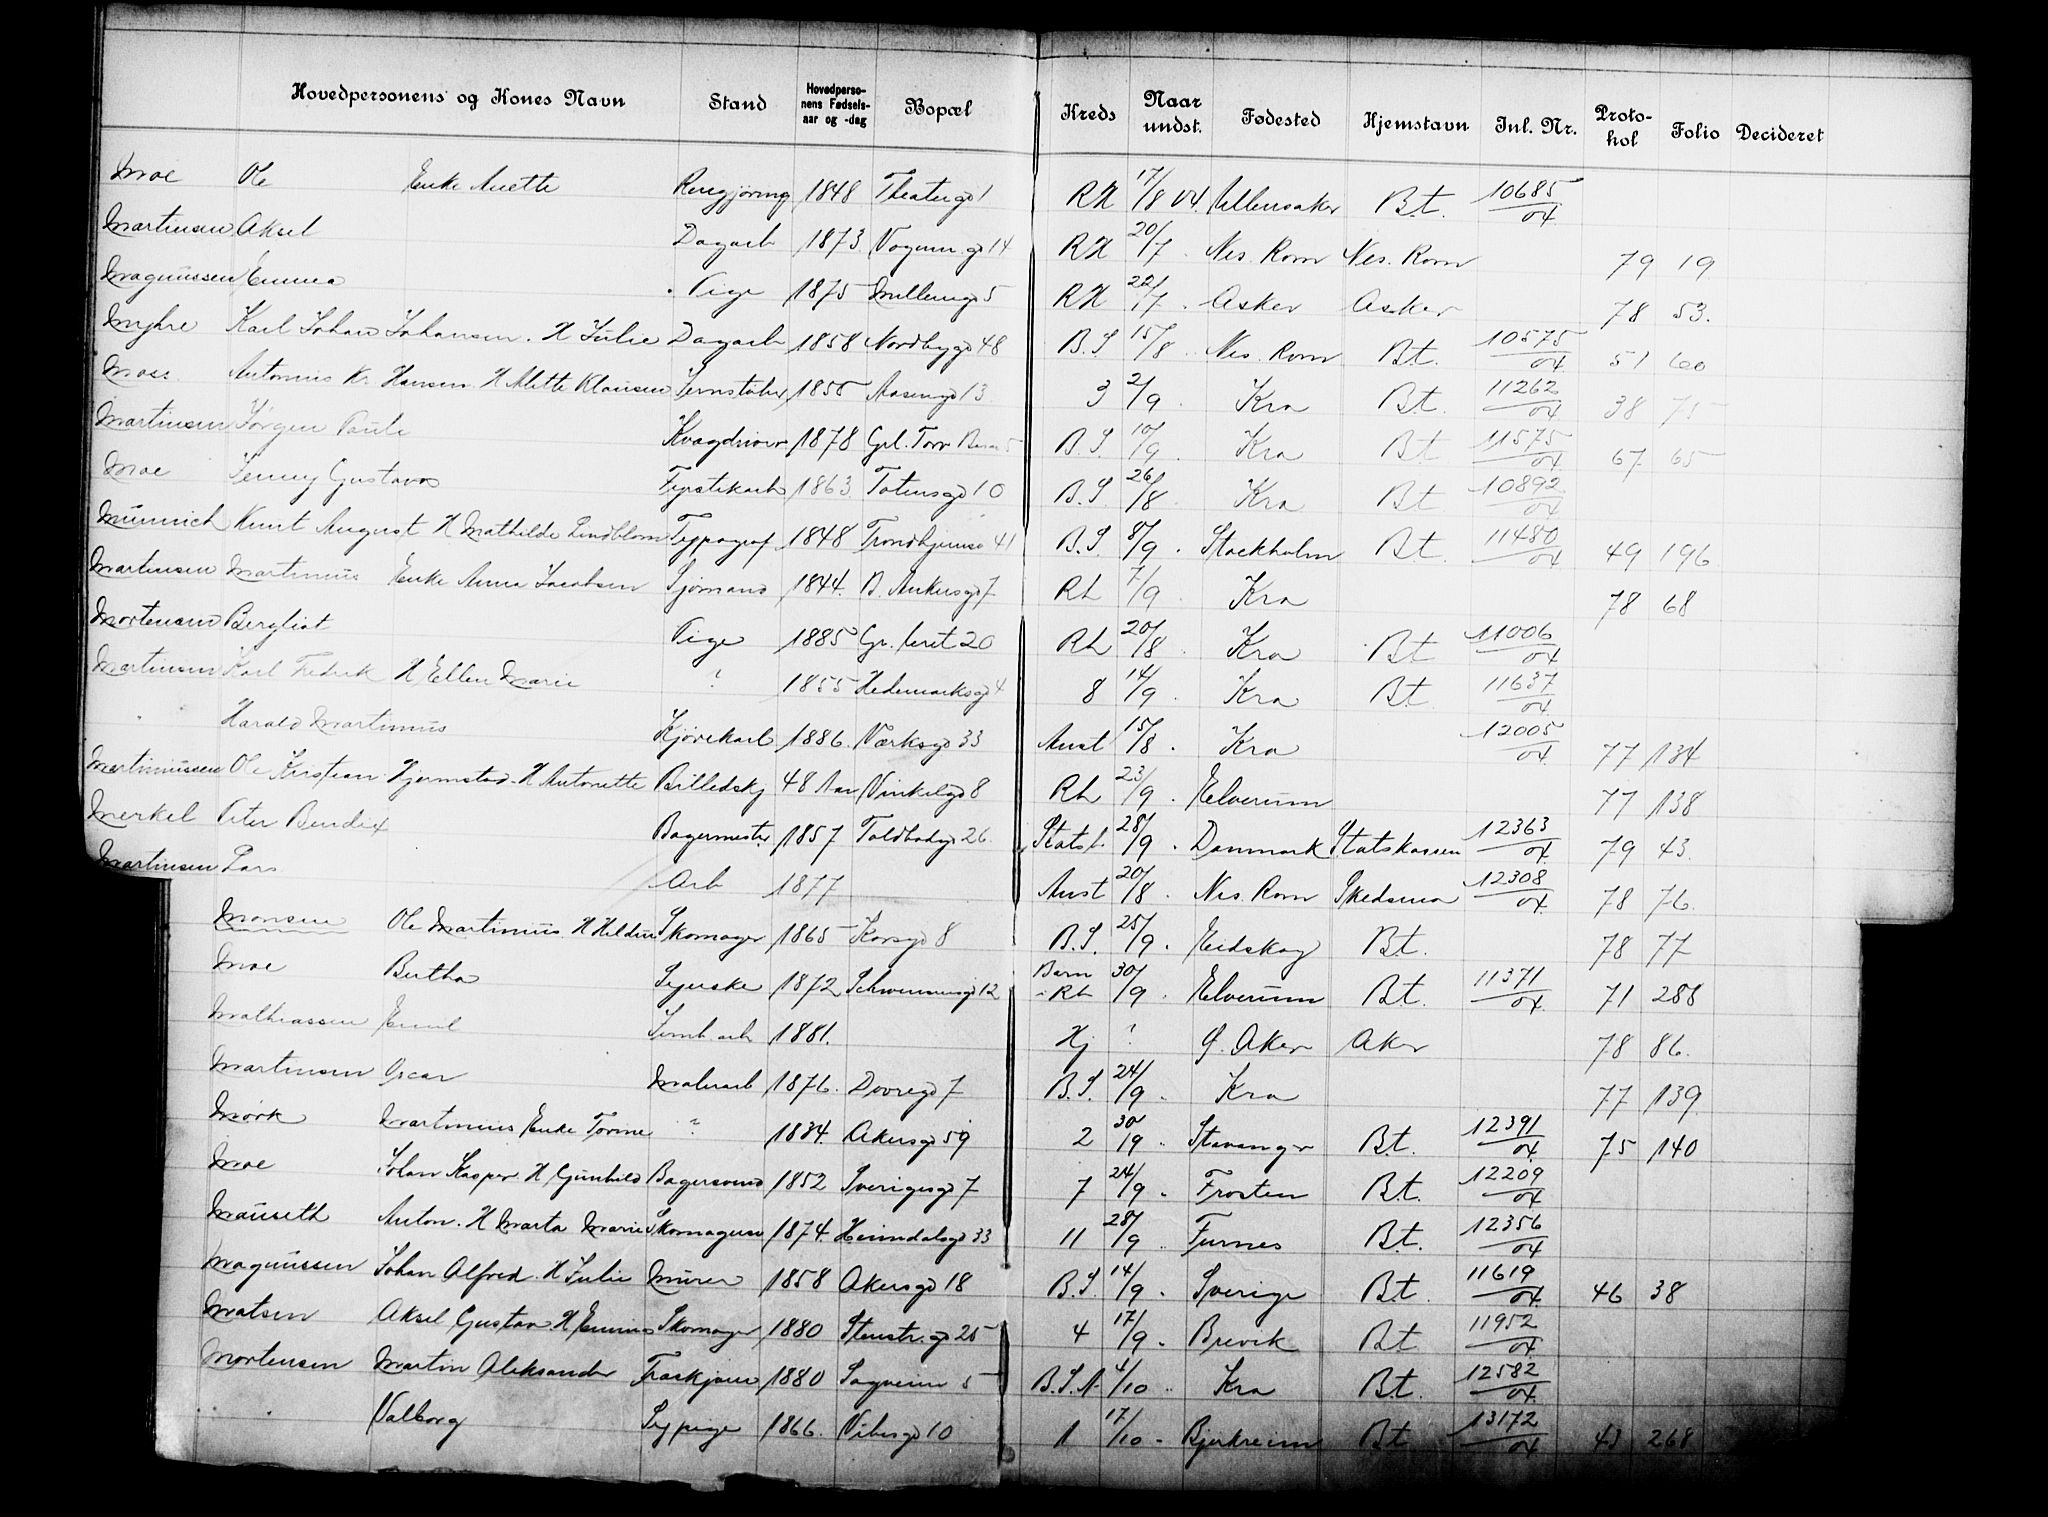 Hovedpersonens og Kones Navn Stand Hovedperso-nens Fødsels-aar og -dag Bopæl Kreds Naar undst. Fødested Hjemstavn Inl. Nr. Proto-kol Folio Decideret
Moe Ole Enke Anette Rengjøring 1848 Theatergd 1 RH 17/8 04. Ullensaker Bt. 10685/04
Martinsen Aksel Dagarb 1873 Vognm.gd 14 RH 20/7 Nes. Rom Nes. Rom 79 19
Magnussen Emma Pige 1875 Møllergd 5 RH 22/7 Asker Asker 78 53.
Myhre Karl Johan Johansen. H Julie Dagarb 1858 Nordbygd 48 B.S 15/8 Nes. Rom Bt. 10575/04 51 60
Moss Antonius Kr. Hansen. H Mette Klausen Jernstøber 1855 Aasengd 13 3 2/9 Kra Bt. 11262/04 38 75
Martinsen Jørgen Paule Kvægdriver 1878 Grl. Torv 5 B.S. 10/9 Kra Bt 11575/04 67 65
Moe Jenny Gustava Fyrstikarb 1863 Totensgd 10 B.S 26/8 Kra Bt 10892/04
Münnich Knut August H Mathilde Lindblom Typograf 1848 Trondhjemsv 41 B.S. 8/9 Stockholm Bt. 11480/04 49 196
Martinsen Martinius Enke Anna Jacobsen Sjømand 1844. B. Ankersgd 7 Rh 7/9 Kra 78 68
Mortensen Bergliot Pige 1885 Gr. leret 20 Rh 20/8 Kra Bt 11006/04
Martinsen Karl Fredrik H Ellen Marie ? 1855 Hedemarksgd 4 8 14/9 Kra Bt. 11637/04
" Harald Martinius Kjørekarl 1886. Værksgd 33 Aust 15/8 Kra 12005/04 77 134
Martiniussen Ole Kristian Hjermstad. H Antonette Billedskj 48 Aar Vinkelgd 8 Rh 23/9 Elverum 77 138
Merkel Peter Bendix Bagermestr 1857 Toldbodgd 26 Statsb. 28/9 Danmark Statskassen 12363/04 79 43.
Martinsen Lars Arb 1877 Aust 20/8 Nes. Rom Skedsmo 12308/04 78 76.
Monsen Ole Martinius. H Heldine Skomager 1865 Korsgd 8 B.S. 25/9 Eidskog Bt. 78 77
Moe Bertha Syerske 1872 Schwensensgd 12 Barn Rh 30/9 Elverum Bt. 11371/04 71 288
Mathiassen Emil Jernb arb 1881. Hj ? Ø. Aker Aker 78 86.
Martinsen Oscar Malerarb 1876. Dovregd 7 B.S. 24/9 Kra 77 139
Mørk Martinius Enke Tomine ? 1834. Akersgd 59 2 30/9 Stavanger Bt. 12391/04 75 140
Moe Johan Kasper. H Gunhild Bagersvend 1852 Sverigesgd 7 7 24/9 Frosten Bt. 12209/04
Mauseth Anton. H Marta Marie Skomagersv 1874. Heimdalsgd 33 11 28/9 Furnes Bt. 12356/04
Magnussen Johan Alfred. H Julie Murer 1858 Akersgd 18 B.S. 14/9 Sverige Bt. 11619/04 46 38
Matsen Aksel Gustav. H Emma Skomager 1880 Stenstr.gd 25 4 17/9 Brevik Bt 11952/04
Mortensen Martin Aleksander Traskjærer 1880 Sagveien 5 B.S.A. 4/10 Kra Bt. 12582/04
" Valborg Sypige 1866. Vibesgd 10 1 17/10 Bjerkreim Bt. 13172/04 43 268